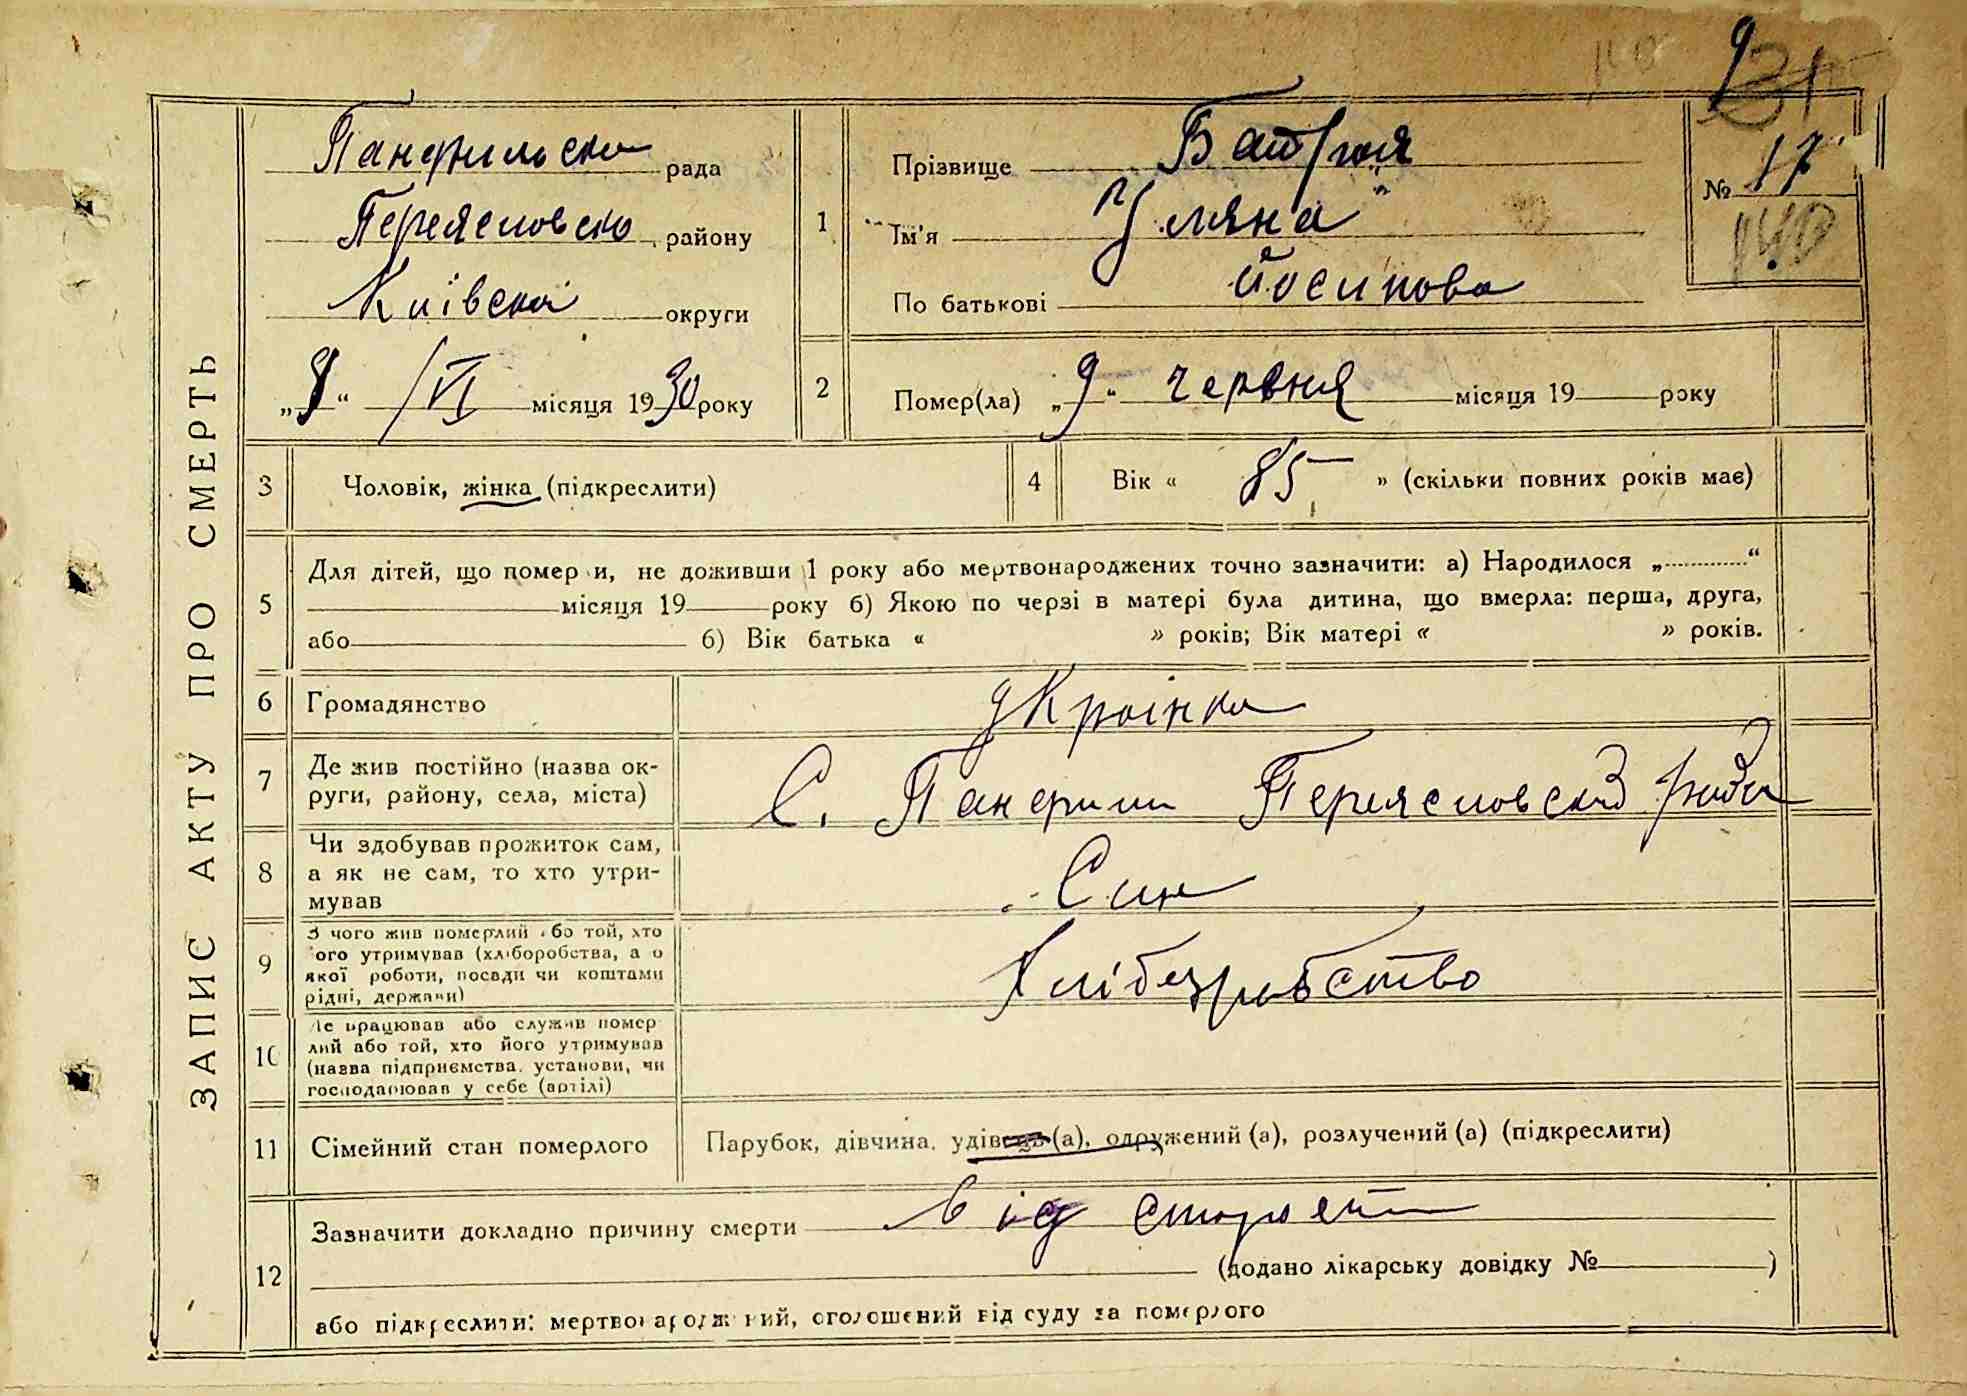 ЗАПИС АКТУ ПРО СМЕРТЬ
Панфильска рада
Переяславско району
Київской округи
„9“ /VI місяця 1930 року
1
Прізвище
Ім'я Уляна
По батькові Йосипова
№ 17
140
2
Помер(ла) „9“ червня місяця 19 року
3
Чоловік, жінка (підкреслити)
4
Вік « 85 » (скільки повних років має)
5
Для дітей, що помер и, не доживши 1 року або мертвонароджених точно зазначити: а) Народилося „ “
місяця 19 року б) Якою по черзі в матері була дитина, що вмерла: перша, друга,
або б) Вік батька « » років; Вік матері « » років.
6
Громадянство
Украінка
7
Де жив постійно (назва ок-
руги, району, села, міста)
С. Панфили Переясловской ради
8
Чи здобував прожиток сам,
а як не сам, то хто утри-
мував
Син
9
З чого жив померлий або той, хто
ого утримував (хліборобства, а о
якої роботи, посади чи коштами
рідні, держави)
Хліборобство
10
Де працював або служив помер
лий або той, хто його утримував
(назва підприємства, установи, чи
господарював у себе (артілі)
11
Сімейний стан померлого
Парубок, дівчина, удівець (а), одружений (а), розлучений (а) (підкреслити)
12
Зазначити докладно причину смерти від старости
(додано лікарську довідку № )
або підкреслити: мертвонароджений, оголошений від суду за померлого